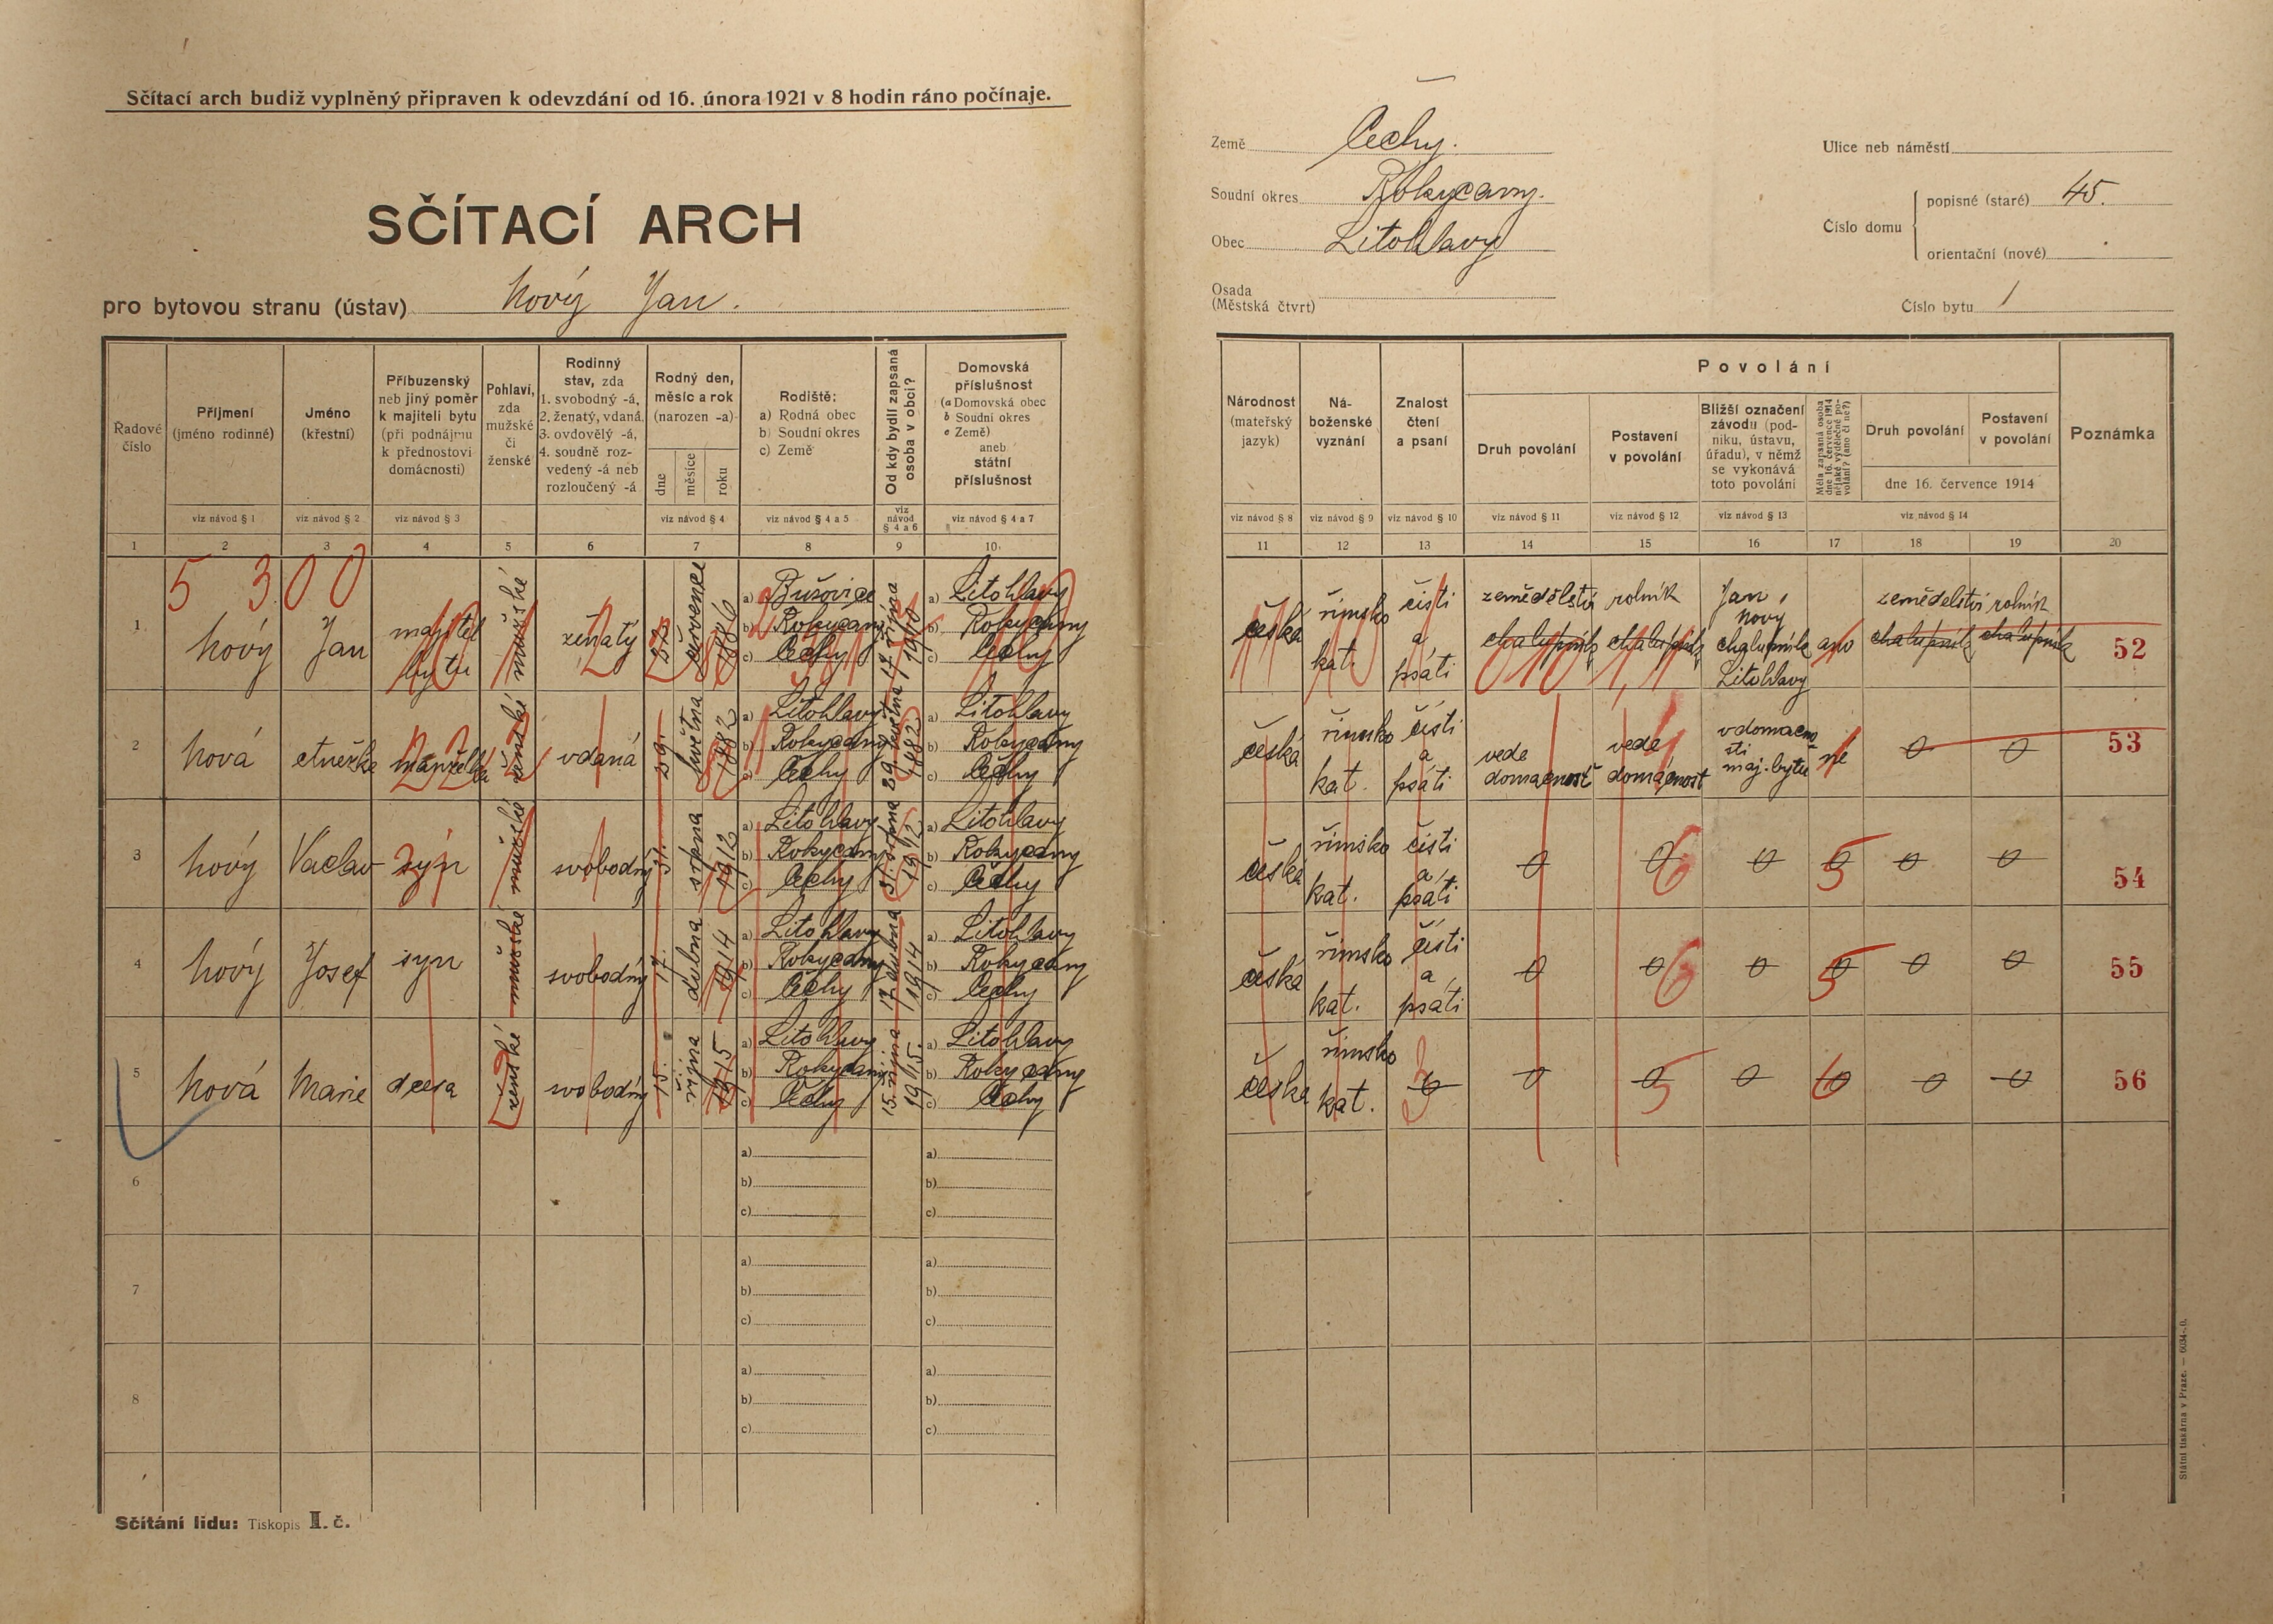 Sčítací arch budiž vyplněný připraven k odevzdání od 16. února 1921 v 8 hodin ráno počínaje.
SČÍTACÍ ARCH
pro bytovou stranu (ústav) Nový Jan.
Země Čechy.
Soudní okres Rokycany.
Obec Litohlavy
Osada
(Městská čtvrt)
Ulice neb náměstí
Číslo domu
popisné (staré) 45.
orientační (nové)
Číslo bytu 1
Řadové číslo
Příjmení (jméno rodinné)
Jméno (křestní)
Příbuzenský neb jiný poměr k majiteli bytu (při podnájmu k přednostovi domácnosti)
Pohlaví, zda mužské či ženské
Rodinný stav, zda 1. svobodný -á, 2. ženatý, vdaná, 3. ovdovělý -á, 4. soudně rozvedený -á neb rozloučený -á
Rodný den, měsíc a rok (narozen -a)
dne měsíce roku
Rodiště: a) Rodná obec b) Soudní okres c) Země
Od kdy bydlí zapsaná osoba v obci?
Domovská příslušnost (a Domovská obec b Soudní okres c Země) aneb státní příslušnost
viz návod § 1
viz návod § 2
viz návod § 3
viz návod § 4
viz návod § 4 a 5
viz návod § 4 a 6
viz návod § 4 a 7
1 2 3 4 5 6 7 8 9 10
Národnost (mateřský jazyk)
Náboženské vyznání
Znalost čtení a psaní
Povolání
Druh povolání
Postavení v povolání
Bližší označení závodu (podniku, ústavu, úřadu), v němž se vykonává toto povolání
Měla zapsaná osoba dne 16. července 1914 nějaké výdělečné povolání? (ano či ne?)
Druh povolání
Postavení v povolání
dne 16. července 1914
Poznámka
viz návod § 8
viz návod § 9
viz návod § 10
viz návod § 11
viz návod § 12
viz návod § 13
viz návod § 14
11 12 13 14 15 16 17 18 19 20
5 300
1 Nový Jan majitel bytu mužské ženatý července 1886
a) Bušovice b) Rokycany c) Čechy
17. října 1910
a) Litohlavy b) Rokycany c) Čechy
česká římsko kat. čísti a psáti
zemědělství chalupník
rolník chalupník
Jan Nový chalupník Litohlavy
ano
zemědelství chalupník
rolník chalupník
52
2 Nová Anežka manželka ženské vdaná 29. května 1882
a) Litohlavy b) Rokycany c) Čechy
29. května 1882
a) Litohlavy b) Rokycany c) Čechy
česká římsko kat. čísti a psáti
vede domacnost
vede domácnost
v domacnosti maj. bytu
ne 0 0 53
3 Nový Vaclav syn mužské svobodný 31. srpna 1912
a) Litohlavy b) Rokycany c) Čechy
31. srpna 1912
a) Litohlavy b) Rokycany c) Čechy
česká římsko kat. čísti a psáti
0 0 6 0 5 0 0 54
4 Nový Josef syn mužské svobodný 17. dubna 1914
a) Litohlavy b) Rokycany c) Čechy
17. dubna 1914
a) Litohlavy b) Rokycany c) Čechy
česká římsko kat. čísti a psáti
0 0 6 0 0 5 0 0 55
5 Nová Marie dcera ženské svobodný 15. října 1915
a) Litohlavy b) Rokycany c) Čechy
15. října 1915.
a) Litohlavy b) Rokycany c) Čechy
česká římsko kat. 0 3
0 0 5 0 0 6 0 0 56
6 a) b) c) a) b) c)
7 a) b) c) a) b) c)
8 a) b) c) a) b) c)
Sčítání lidu: Tiskopis I. č.